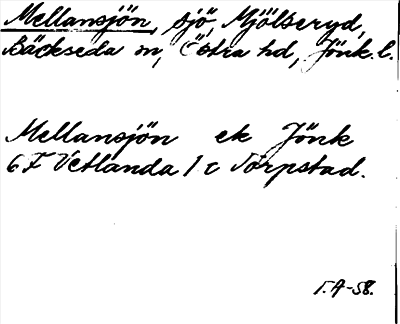 Mellansjön, sjö, Mjölseryd,
Bäckseda sn, Östra hd, Jönk. l.
Mellansjön ek Jönk
6 F Vetlanda 1 c Torpstad.
T.A-58.